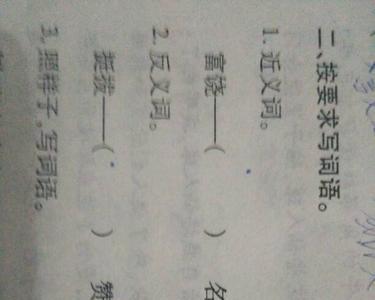 二、按要求写词语。
1. 近义词。
富饶——(　　) 名
2. 反义词。
挺拔——(　　) 赞
3. 照样子,写词语。